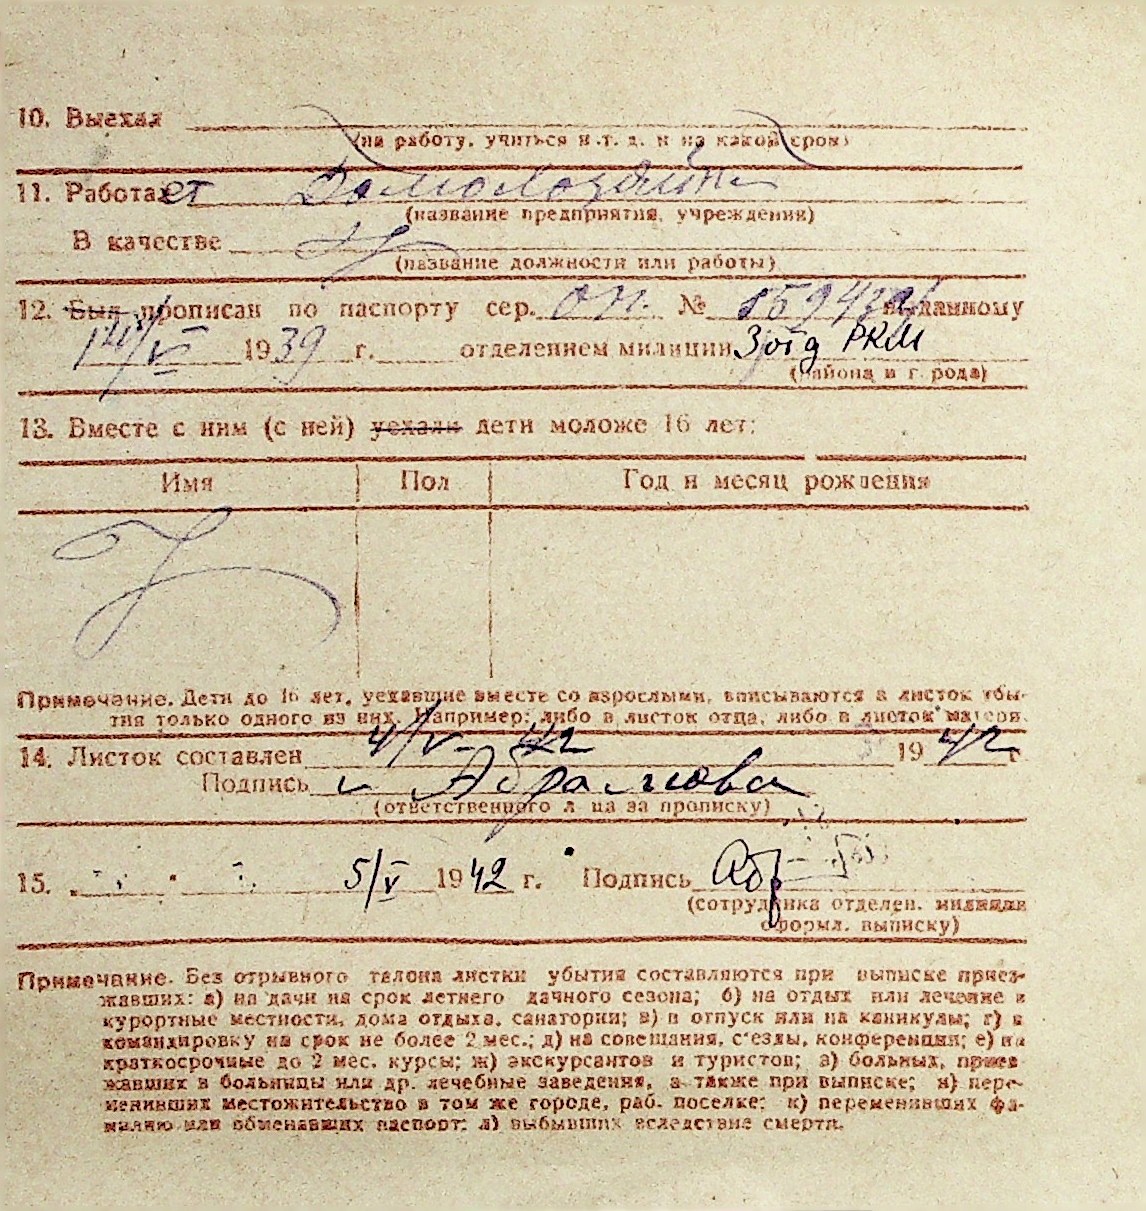 10. Выехал
(на работу, учиться и т. д. и на какой срок)
11. Работает Домохозяйка
(название предприятия, учреждения)
В качестве
(название должности или работы)
12. Был прописан по паспорту сер. ОП. № выданному
14/V 1939 г. отделением милиции РКМ
(района и города)
13. Вместе с ним (с ней) уехали дети моложе 16 лет:
Имя Пол Год и месяц рождения
Примечание. Дети до 16 лет, уехавшие вместе со взрослыми, вписываются в листок убы-
тия только одного из них. Например: либо в листок отца, либо в листок матери.
14. Листок составлен 4/V- 42 1942 г
Подпись Абрамова
(ответственного лица за прописку)
15. 5/V 1942 г. Подпись
(сотрудника отделен. милиции
оформл. выписку)
Примечание. Без отрывного талона листки убытия составляются при выписке приез-
жавших: а) на дачи на срок летнего дачного сезона; б) на отдых или лечение в
курортные местности, дома отдыха, санатории; в) в отпуск или на каникулы; г) в
командировку на срок не более 2 мес.; д) на совещания, с'езды, конференции; е) на
краткосрочные до 2 мес. курсы; ж) экскурсантов и туристов; з) больных, приез-
жавших в больницы или др. лечебные заведения, а также при выписке; и) пере-
менивших местожительство в том же городе, раб. поселке; к) переменивших фа-
милию или обменявших паспорт; л) выбывших вследствие смерти.